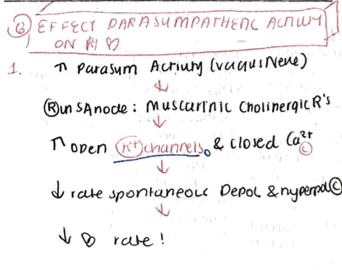 ⑥ EFFECT PARASUMPATHETIC ACTIVITY
ON R! ♡
1. ↑ parasum Activity (vagus Neve)
↓
Ⓡ un SAnode: Muscarinic Cholinergic R's
↓
↑ open K+ channels. & closed Ca2+ ©
↓
↓ rate spontaneous Depol & hyperpol ©
↓
↓ ♡ rate!